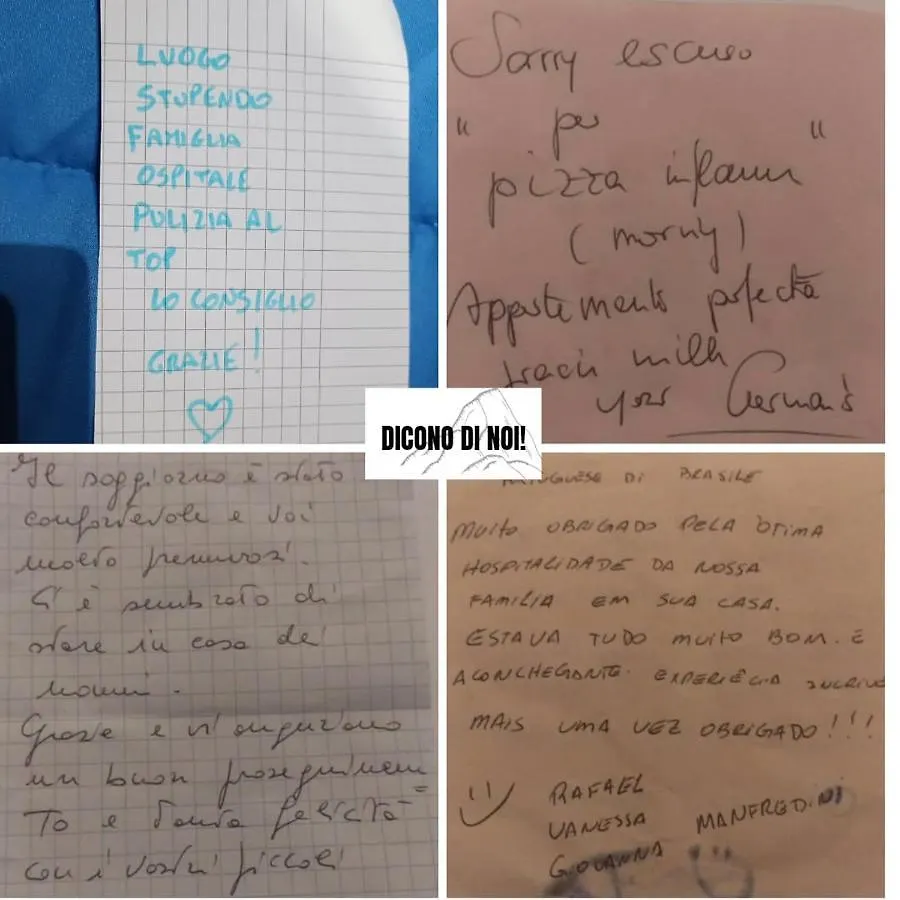 LUOGO
STUPENDO
FAMIGLIA
OSPITALE
PULIZIA AL
TOP
LO CONSIGLIO
GRAZIE!
Sorry escuso
" per "
pizza inflamm
(morny)
Appartemento perfecta
milk
your German's
DICONO DI NOI!
Il soggiorno è stato
confortevole e voi
molto premurosi.
Ci è sembrato di
stare in casa dei
nonni.
Grazie e vi auguriamo
un buon proseguimen=
to e tanta felicità
con i vostri piccoli
DI BRASILE
MUITO OBRIGADO PELA ÓTIMA
HOSPITALIDADE DA NOSSA
FAMILIA EM SUA CASA.
ESTAVA TUDO MUITO BOM. E
ACONCHEGANTE. EXPERIÊCIA INCRIVE
MAIS UMA VEZ OBRIGADO!!!
RAFAEL
VANESSA MANFREDINI
GIOVANNA